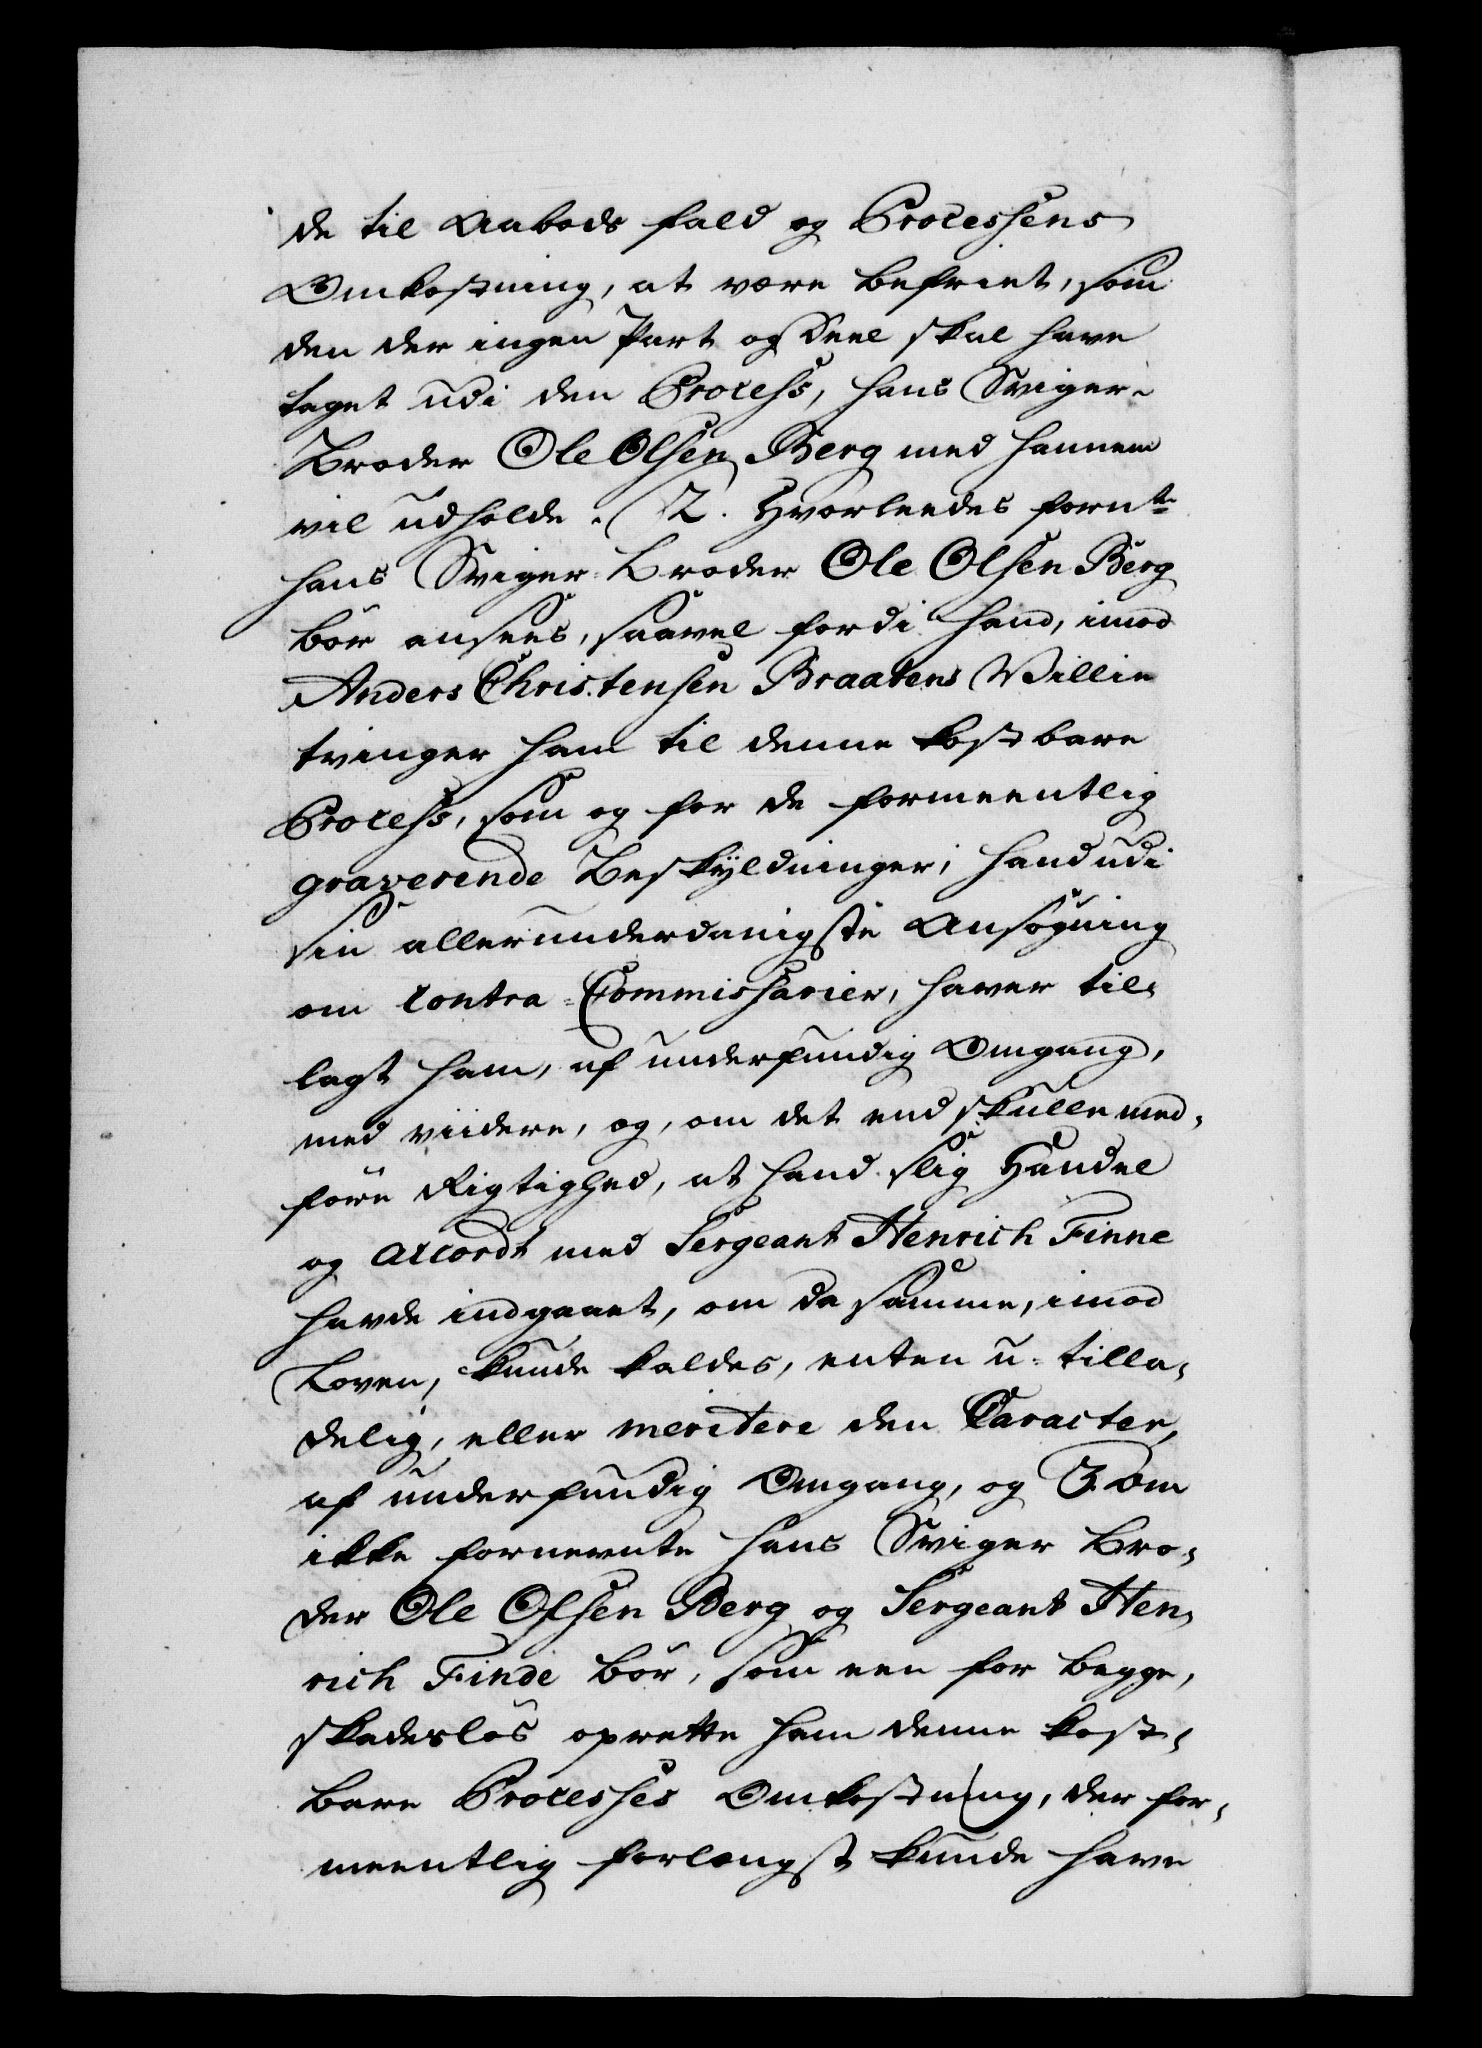 de til Aabods fald og Processens
Omkostning, at være befriet, som
den der ingen Part og Deel skal have
taget udi den Process, hans Sviger-
Broder Ole Olsen Berg med hannem
vil udholde. 2. Hvorleedes fornte
hans Sviger-Broder Ole Olsen Berg
bör ansees, saavel fordi hand, imod
Anders Christensen Braatens Villie
tvinger ham til denne kostbare
Process, som og for de formeentlig
graverende Beskyldninger, hand udi
sin allerunderdanigste Ansøgning
om Contra-Commissarier, haver til-
lagt ham, af underfundig Omgang,
med viidere, og, om det end skulle med-
före Rigtighed, at hand slig Handel
og Accordt med Sergeant Henrich Finne
havde indgaaet, om da samme, imod
Loven, kunde kaldes, enten u-tilla-
delig, eller meritere den Caracter,
af underfundig Omgang, og 3. om
ikke fornevnte hans Sviger Bro-
der Ole Olsen Berg og Sergeant Hen-
rich Finde bör, som een for begge,
skadeslös oprette ham denne kost-
bare Processes Omkostning, der for-
meentlig forlængst kunde have